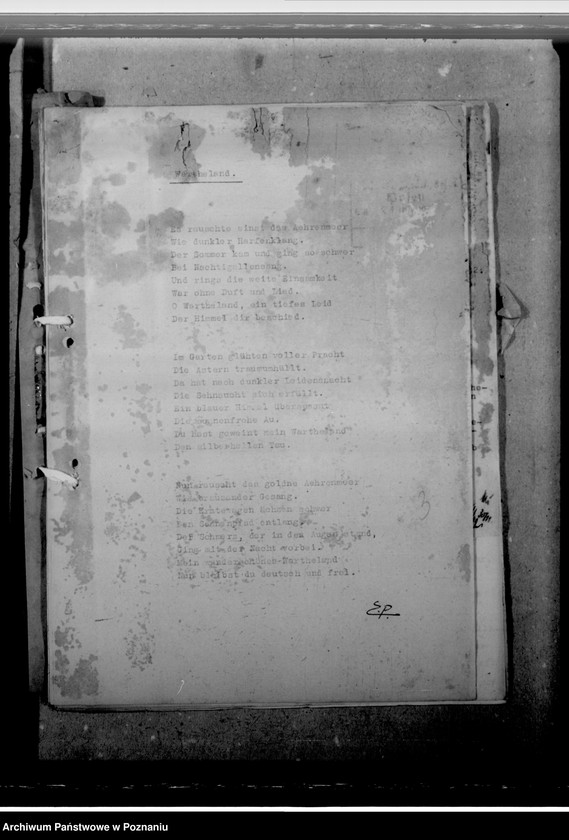 Wartheland.
Es rauschte einst das Aehrenmeer
Wie dunkler Harfenklang.
Der Sommer kam und ging so schwer
Bei Nachtigallensang.
Und rings die weite Einsamkeit
War ohne Duft und Lied.
O Wartheland, ein tiefes Leid
Der Himel dir beschied.
Im Garten glühten voller Pracht
Die Astern traumumhüllt.
Da hat nach dunkler Leidensnacht
Die Sehnsucht sich erfüllt.
Ein blauer Himmel überspannt
Die morgenfrohe Au.
Du hast geweint mein Wartheland
Den silberhellen Tau.
Nun rauscht das goldne Aehrenmeer
Gesang.
Die Erntewagen schwer
Den entlang.
Der Schmerz, der in den Augen stand,
Ging mit der Nacht vorbei.
Mein Wartheland
Nun bleibst du deutsch und frei.
E.P.
Archiwum Państwowe w Poznaniu